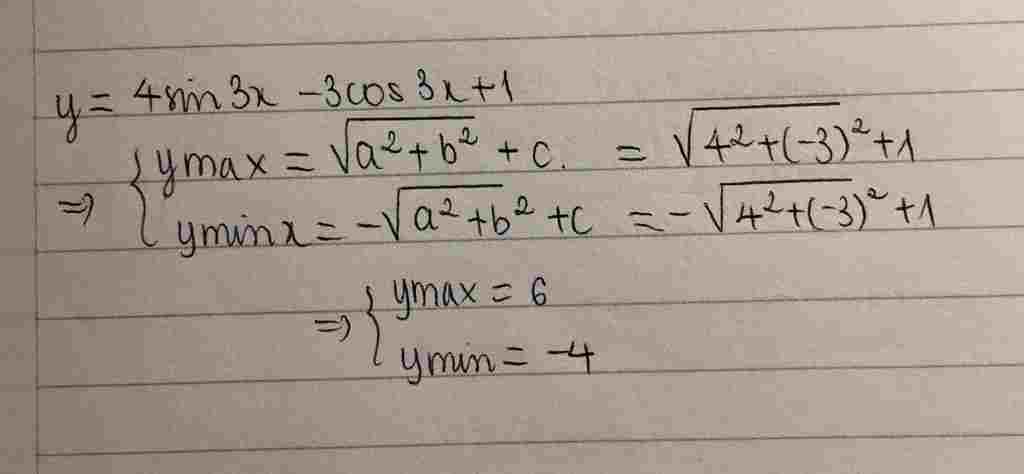 y = 4sin 3x - 3cos 3x + 1
⇒ { ymax = √(a² + b²) + c. = √(4² + (-3)²) + 1
yminx = -√(a² + b²) + c = -√(4² + (-3)²) + 1
⇒ { ymax = 6
ymin = -4